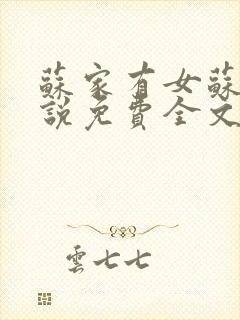 蘇家有女蘇
說免費全文
雲七七